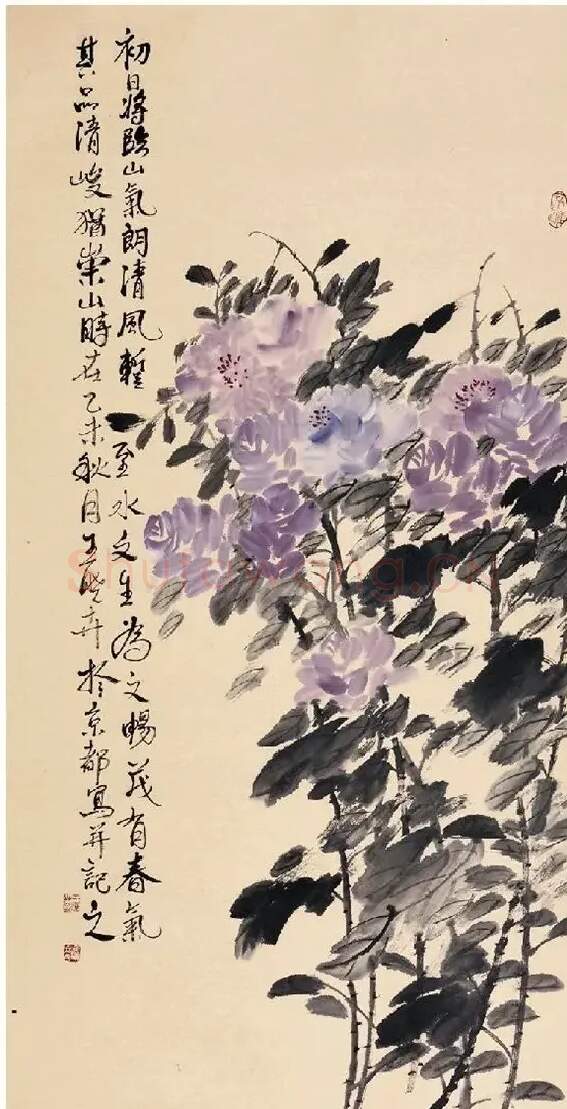 初日将臨山氣朗清風暫至水文生為文暢茂有春氣
其品清峻猶崇山時在乙未秋月王 於京都寫并記之
Shufawang.cn